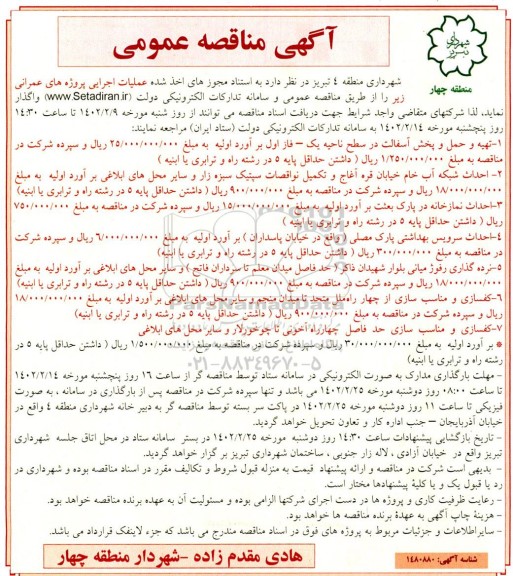 آگهی مناقصه عمومی
شهرداری
تبریز
منطقه چهار
شهرداری منطقه ۴ تبریز در نظر دارد به استناد مجوز های اخذ شده عملیات اجرایی پروژه های عمرانی
زیر را از طریق مناقصه عمومی و سامانه تدارکات الکترونیکی دولت (www.Setadiran.ir) واگذار
نماید، لذا شرکتهای متقاضی واجد شرایط جهت دریافت اسناد مناقصه می توانند از روز شنبه مورخه ۱۴۰۲/۲/۹ تا ساعت ۱۴:۳۰
روز پنجشنبه مورخه ۱۴۰۲/۲/۱۴ به سامانه تدارکات الکترونیکی دولت (ستاد ایران) مراجعه نمایند:
۱-تهیه و حمل و پخش آسفالت در سطح ناحیه یک – فاز اول بر آورد اولیه به مبلغ ۲۵/۰۰۰/۰۰۰/۰۰۰ ریال و سپرده شرکت در
مناقصه به مبلغ ۱/۲۵۰/۰۰۰/۰۰۰ ریال ( داشتن حداقل پایه ۵ در رشته راه و ترابری یا ابنیه )
۲- احداث شبکه آب خام خیابان قره آغاج و تکمیل نواقصات سپتیک سبزه زار و سایر محل های ابلاغی بر آورد اولیه به مبلغ
۱۸/۰۰۰/۰۰۰/۰۰۰ ریال و سپرده شرکت در مناقصه به مبلغ ۹۰۰/۰۰۰/۰۰۰ ریال ( داشتن حداقل پایه ۵ در رشته راه و ترابری یا ابنیه)
۳-احداث نمازخانه در پارک بعثت بر آورد اولیه به مبلغ ۱۵/۰۰۰/۰۰۰/۰۰۰ ریال و سپرده شرکت در مناقصه به مبلغ ۷۵۰/۰۰۰/۰۰۰
ریال ( داشتن حداقل پایه ۵ در رشته راه و ترابری یا ابنیه)
۴-احداث سرویس بهداشتی پارک مصلی (واقع در خیابان پاسداران ) بر آورد اولیه به مبلغ ۶/۰۰۰/۰۰۰/۰۰۰ ریال و سپرده شرکت
در مناقصه به مبلغ ۳۰۰/۰۰۰/۰۰۰ ریال ( داشتن حداقل پایه ۵ در رشته راه و ترابری یا ابنیه)
۵-نرده گذاری رفوژ میانی بلوار شهیدان ذاکر ( حد فاصل میدان معلم تا سرداران فاتح ) و سایر محل های ابلاغی بر آورد اولیه به مبلغ
۱۸/۰۰۰/۰۰۰/۰۰۰ ریال و سپرده شرکت در مناقصه به مبلغ ۹۰۰/۰۰۰/۰۰۰ ریال ( داشتن حداقل پایه ۵ در رشته راه و ترابری یا ابنیه)
۶-کفسازی و مناسب سازی از چهار راه ملل متحد تا میدان منجم و سایر محل های ابلاغی بر آورد اولیه به مبلغ ۱۸/۰۰۰/۰۰۰/۰۰۰
ریال و سپرده شرکت در مناقصه به مبلغ ۹۰۰/۰۰۰/۰۰۰ ریال ( داشتن حداقل پایه ۵ در رشته راه و ترابری یا ابنیه)
۷-کفسازی و مناسب سازی حد فاصل چهارراه آخونی تا چوخورلار و سایر محل های ابلاغی
* بر آورد اولیه به مبلغ ۳۰/۰۰۰/۰۰۰/۰۰۰ ریال و سپرده شرکت در مناقصه به مبلغ ۱/۵۰۰/۰۰۰/۰۰۰ ریال ( داشتن حداقل پایه ۵ در
رشته راه و ترابری یا ابنیه)
- مهلت بارگذاری مدارک به صورت الکترونیکی در سامانه ستاد توسط مناقصه گر از ساعت ۱۶ روز پنجشنبه مورخه ۱۴۰۲/۲/۱۴
تا ساعت ۰۸:۰۰ روز دوشنبه مورخه ۱۴۰۲/۲/۲۵ می باشد و تنها سپرده شرکت در مناقصه پس از بارگذاری در سامانه ، به صورت
فیزیکی تا ساعت ۱۱ روز دوشنبه مورخه ۱۴۰۲/۲/۲۵ در پاکت سر بسته توسط مناقصه گر به دبیر خانه شهرداری منطقه ۴ واقع در
خیابان آذربایجان – جنب اداره کار و تعاون تحویل خواهد گردید.
- تاریخ بازگشایی پیشنهادات ساعت ۱۴:۳۰ روز دوشنبه مورخه ۱۴۰۲/۲/۲۵ در بستر سامانه ستاد در محل اتاق جلسه شهرداری
تبریز واقع در خیابان آزادی ، لاله زار جنوبی ، ساختمان شهرداری تبریز بر گزار خواهد گردید.
- بدیهی است شرکت در مناقصه و ارائه پیشنهاد قیمت به منزله قبول شروط و تکالیف مقرر در اسناد مناقصه بوده و شهرداری در
رد یا قبول یک و یا کلیة پیشنهادها مختار است.
- رعایت ظرفیت کاری و پروژه ها در دست اجرای شرکتها الزامی بوده و مسئولیت آن به عهده برنده مناقصه خواهد بود.
- هزینة چاپ آگهی به عهدة برنده مناقصه ها خواهد بود.
- سایراطلاعات و جزئیات مربوط به پروژه های فوق در اسناد مناقصه مندرج می باشد که جزء لاینفک قرارداد می باشد.
هادی مقدم زاده –شهردار منطقه چهار
شناسه آگهی: ۱۴۸۰۸۸۰
ParsNamadData
۰۲۱-۸۸۳۴۹۶۷۰-۵